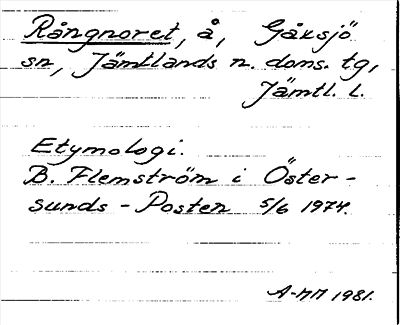 Rångnoret, å, Gåxsjö
sn, Jämtlands n. doms. tg,
Jämtl. l.
Etymologi.
B. Flemström i Öster-
sunds-Posten 5/6 1974.
A-MM 1981.